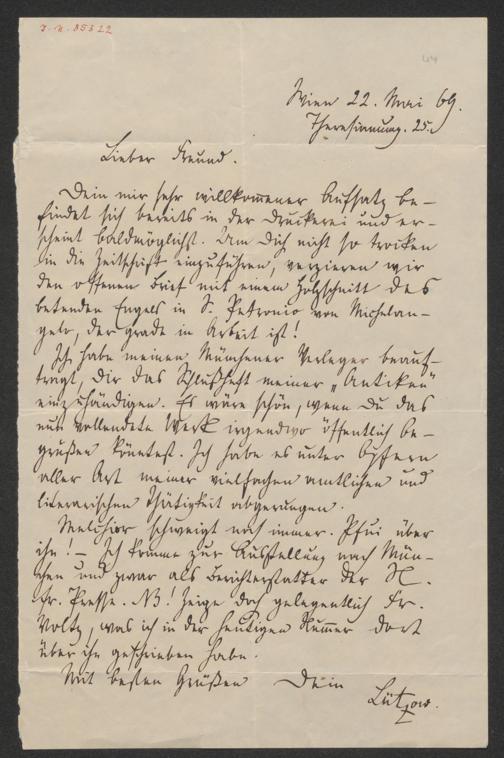 J. N. 85322
44
Wien 22. Mai 69.
Theresianumg. 25.
Lieber Freund.
Dein mir sehr willkommener Aufsatz be-
findet sich bereits in der Druckerei und er-
scheint baldmöglichst. Um Dich nicht so trocken
in die Zeitschrift einzuführen, verzieren wir
den offenen Brief mit einem Holzschnitt des
betenden Engels in S. Petronio von Michelan-
gelo, der grade in Arbeit ist!
Ich habe meinen Münchener Verleger beauf-
tragt, Dir das Schlußheft meiner „Antiken"
einzuhändigen. Es wäre schön, wenn Du das
nun vollendete Werk irgendwo öffentlich be-
grüßen könntest. Ich habe es unter Opfern
aller Art meiner vielfachen amtlichen und
literarischen Thätigkeit abgerungen.
Melchior schweigt noch immer. Pfui über
ihn! – Ich komme zur Ausstellung nach Mün-
chen und zwar als Berichterstatter der N.
fr. Presse. NB! Zeige doch gelegentlich Fr.
Voltz, was ich in der heutigen Numer dort
über ihn geschrieben habe.
Mit besten Grüßen Dein
Lützow.